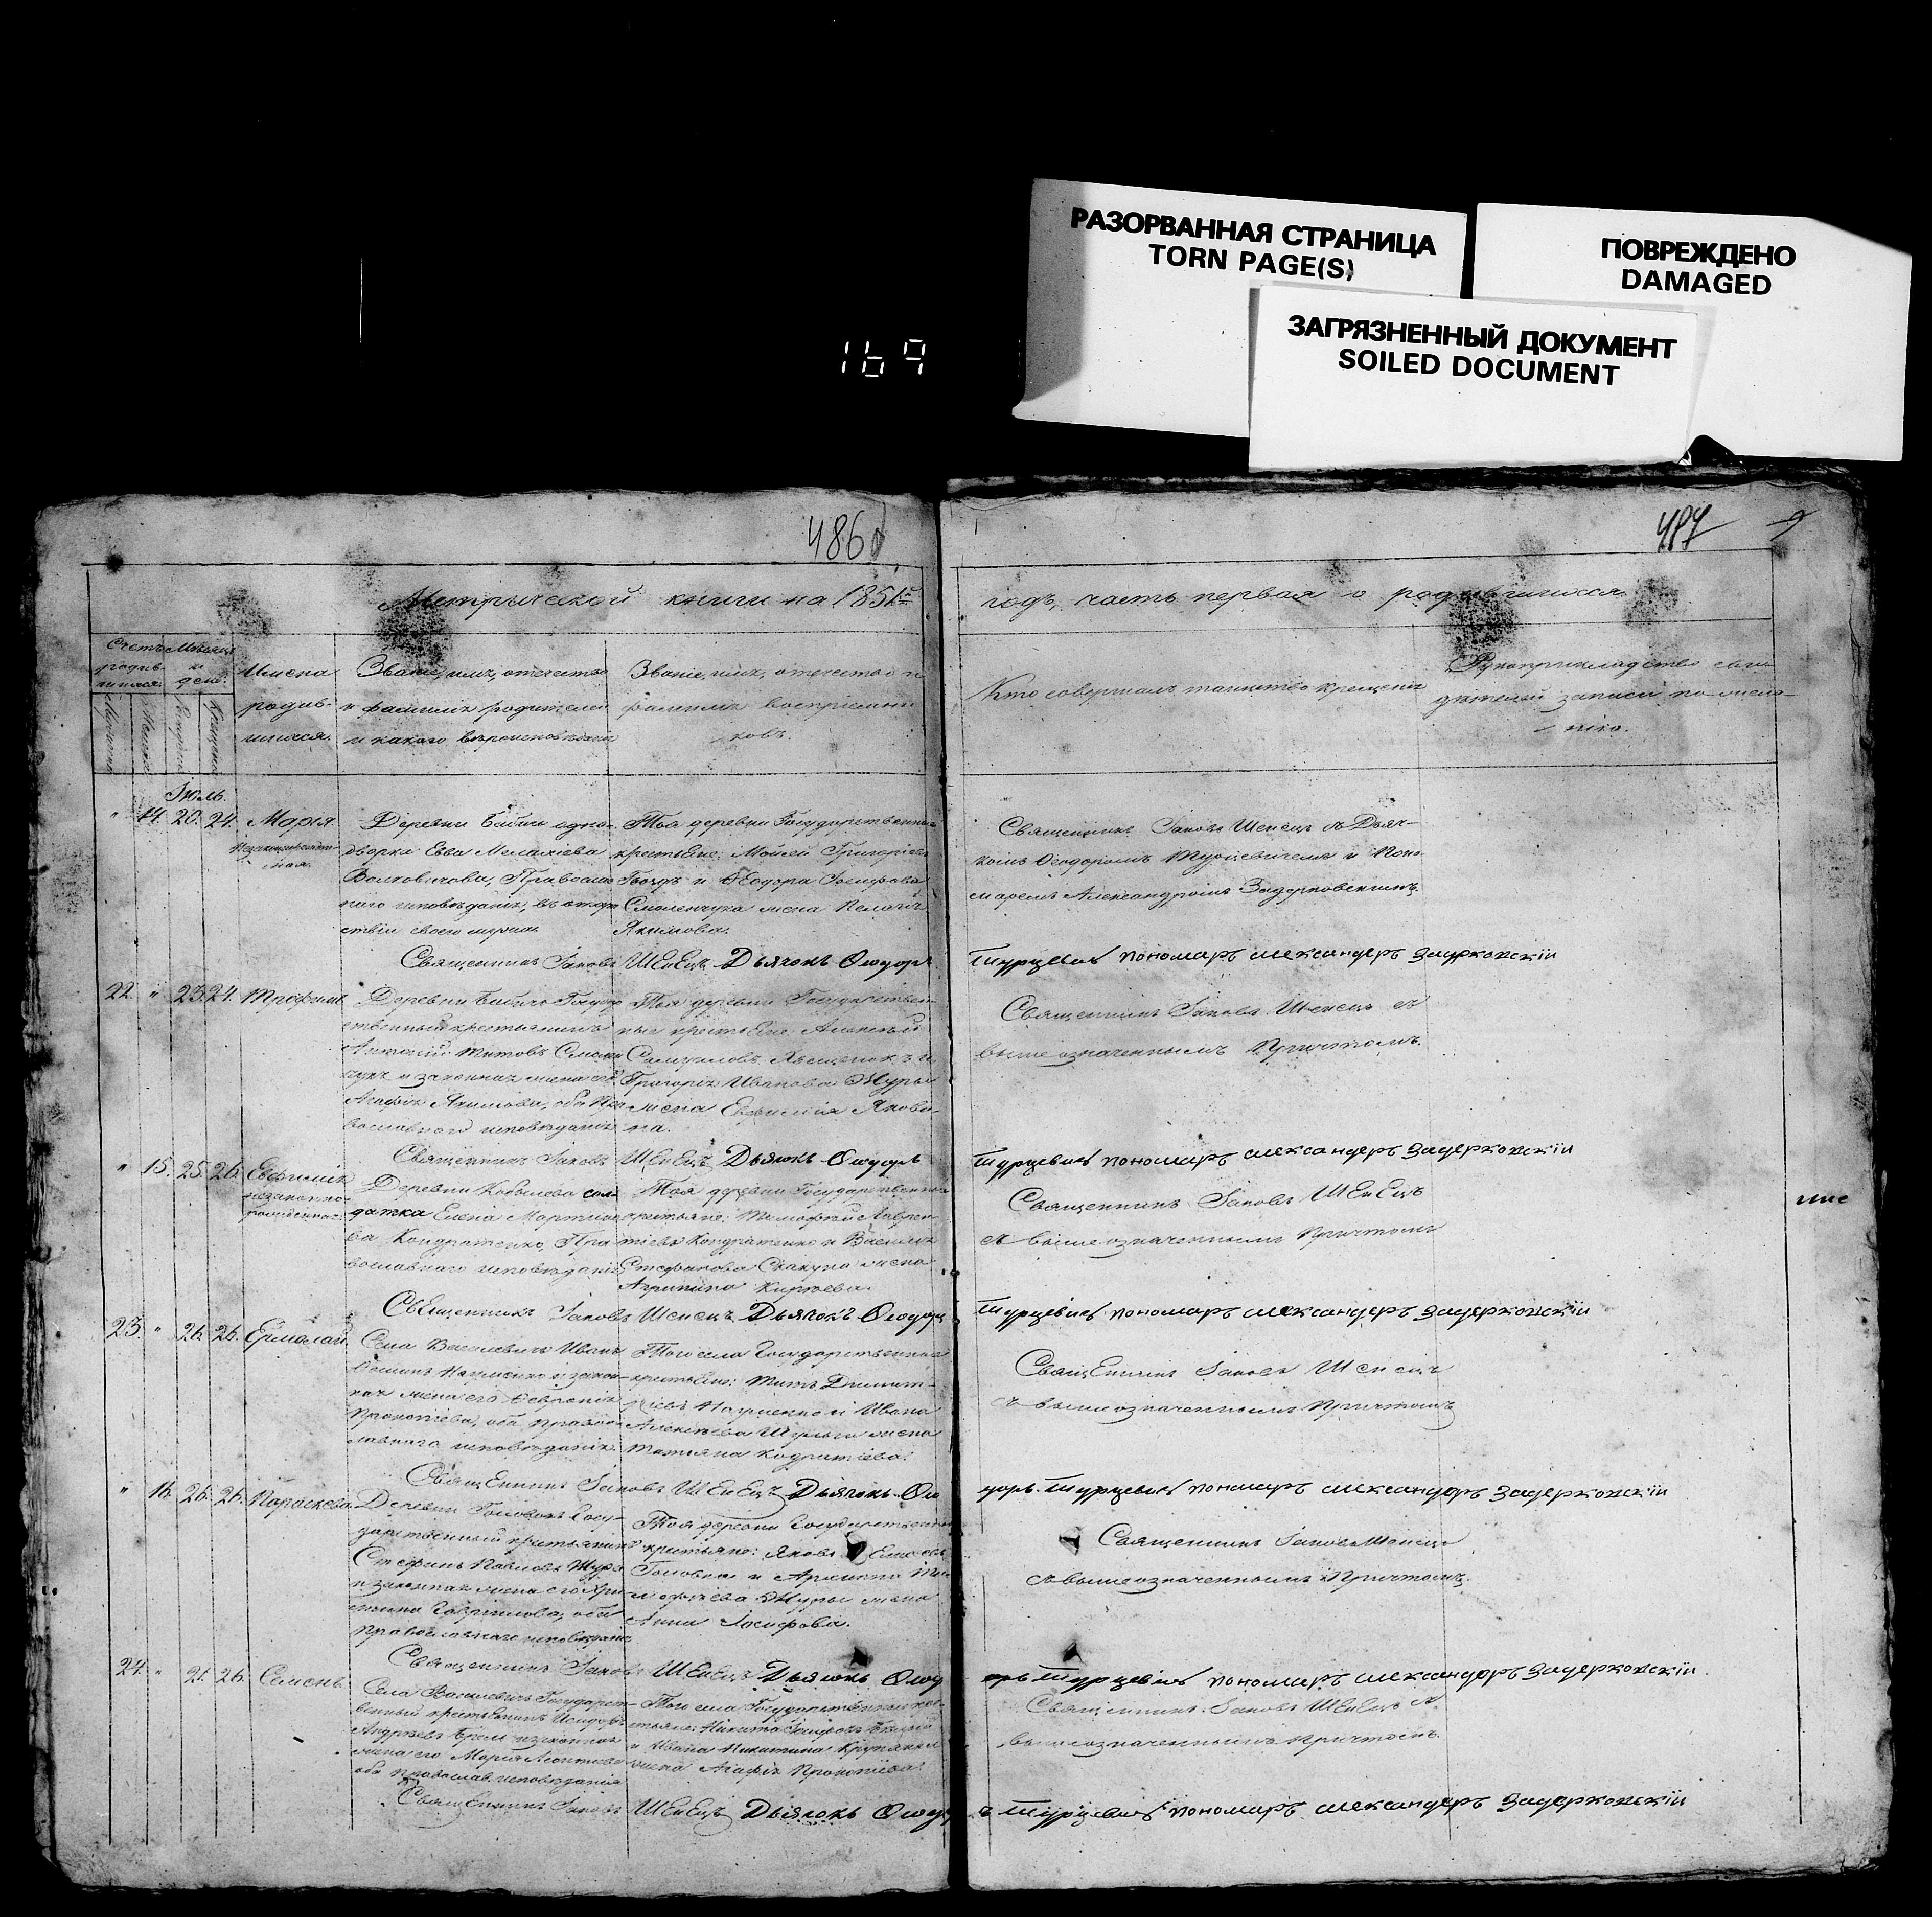 РАЗОРВАННАЯ СТРАНИЦА
TORN PAGE(S)
ПОВРЕЖДЕНО
DAMAGED
ЗАГРЯЗНЕННЫЙ ДОКУМЕНТ
SOILED DOCUMENT
169
486
487
Метрической книги на 1851й
годъ, часть первая о родившихся
Счетъ родив-
шихся.
Мѣсяцъ
и
день.
Имена
родив-
шихся.
Званіе, имя, отчество
и фамилія родителей
и какого вѣроисповѣданія
Званіе, имя, отчество и
фамилія воспріемни-
ковъ.
Кто совершалъ таинство крещенія
Рукоприкладство сви-
дѣтелей записи по жела-
нію.
Іюль.
" 14. 20. 24. Марія
незаконнорожден-
ная.
Деревни Бабичи одно-
дворка Евва Мелахіева
Волковичова, Православ-
наго исповѣданія, въ отсут-
ствіи своего мужа.
Тоя деревни Государственные
крестьяне: Мойсей Григоріевъ
Гвоздъ и Ѳеодора Іосифова
Смоленчука жена Пелагія
Якимова.
Священникъ Іаковъ Шенецъ съ Дьяч-
комъ Ѳеодоромъ Турцевичемъ и Поно-
маремъ Александромъ Задерковскимъ.
Священникъ Іаковъ Шенецъ Дьячокъ Ѳеодоръ Турцевичъ пономаръ александеръ Задерковскій
22. " 23. 24. Трофимъ
Деревни Бабичи Государ-
ственный крестьянинъ
Антоній Титовъ Смолен-
чукъ и законная жена его
Агафія Якимова, оба Пра-
вославнаго исповѣданія
Тоя деревни Государствен-
ные крестьяне Алексѣй
Самуиловъ и
Григорія Иванова Журы
жена Евфимія Яковле-
ва.
Священникъ Іаковъ Шенецъ съ
вышеозначеннымъ Причтомъ.
Священникъ Іаковъ Шенецъ Дьячокъ Ѳеодоръ Турцевичъ пономаръ александеръ Задерковскій
" 15. 25. 26. Евфимія
незаконно-
рожденная.
Деревни Ковылева сол-
датка Елена Мартино-
ва Кондратенко, Пра-
вославнаго исповѣданія
Тоя деревни Государственные
крестьяне: Тимофей Лаврен-
тіевъ Кондратенко и Василія
Стефанова Скакуна жена
Агрипина Кирѣева.
Священникъ Іаковъ Шенецъ
съ вышеозначеннымъ Причтомъ
Священникъ Іаковъ Шенецъ Дьячокъ Ѳеодоръ Турцевичъ пономаръ александеръ Задерковскій
23. " 26. 26. Ермолай
Села Василевичъ Иванъ
Науменко и закон-
ная жена его Февронія
Прокопіева, оба Правос-
лавнаго исповѣданія.
Того села Государственные
крестьяне: Титъ Димит-
ріевъ Науменко и Ивана
Алексѣева Шульги жена
Татьяна Кодратіева.
Священникъ Іаковъ Шенецъ
съ вышеозначеннымъ Причтомъ
Священникъ Іаковъ Шенецъ Дьячокъ Ѳеодоръ Турцевичъ пономаръ александеръ Задерковскій
" 16. 26. 26. Параскева
Деревни Головокъ Госу-
дарственный крестьянинъ
Стефанъ Павловъ Жура
и законная жена его Хри-
стина Гавріилова, оба
Православнаго исповѣданія
Тоя деревни Государственные
крестьяне: Яковъ
Головка и Архиппа Ти-
мофѣева Журы жена
Анна Іосифова.
Священникъ Іаковъ Шенецъ
съ вышеозначеннымъ Причтомъ.
Священникъ Іаковъ Шенецъ Дьячокъ Ѳеодоръ Турцевичъ пономаръ александеръ Задерковскій
24. " 21. 26. Семенъ
Села Василевичъ Государст-
венный крестьянинъ Исидоръ
Андреевъ и законная
жена его Марія Леонтіева
оба Православ. исповѣданія
Того села Государственные кре-
стьяне: Никита Іосифовъ
и Ивана Никитина
жена Агафія Прокопіева
Священникъ Іаковъ Шенецъ съ
вышеозначеннымъ Причтомъ.
Священникъ Іаковъ Шенецъ Дьячокъ Ѳеодоръ Турцевичъ пономаръ александеръ Задерковскій